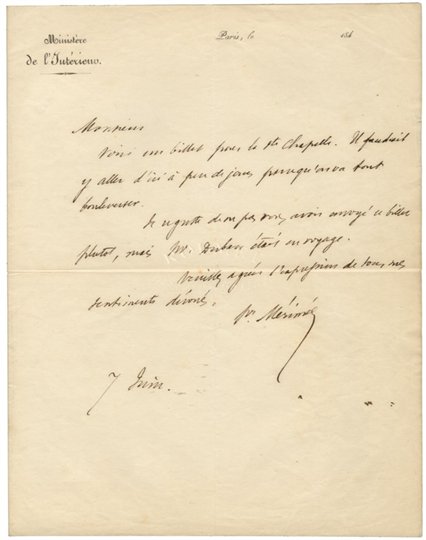 Ministère
de l'Intérieur.
Paris, le 184
Monsieur
Voici un billet pour la Ste Chapelle. Il faudrait
y aller d'ici à peu de jours parcequ'on va tout
bouleverser.
Je regrette de ne pas vous avoir envoyé ce billet
plutot, mais Mr. Duban était en voyage.
Veuillez agréer l'expression de tous mes
sentiments dévoués.
Pr Mérimée
7 Juin.